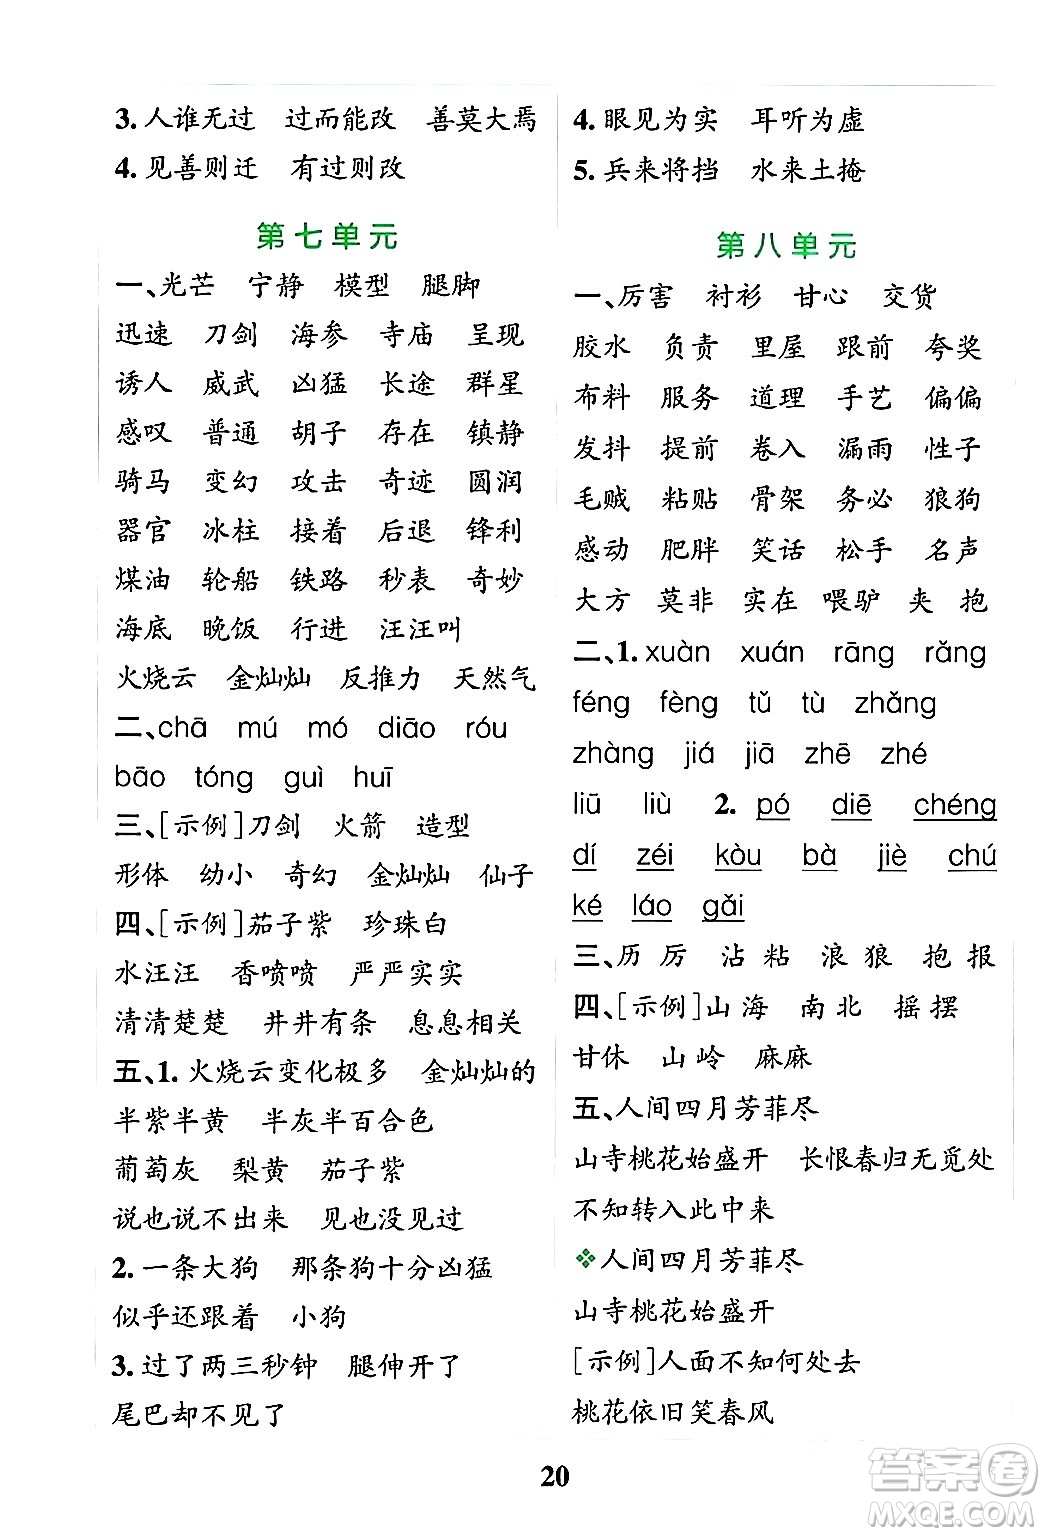 3.人谁无过 过而能改 善莫大焉
4.见善则迁 有过则改
第七单元
一、光芒 宁静 模型 腿脚
迅速 刀剑 海参 寺庙 呈现
诱人 威武 凶猛 长途 群星
感叹 普通 胡子 存在 镇静
骑马 变幻 攻击 奇迹 圆润
器官 冰柱 接着 后退 锋利
煤油 轮船 铁路 秒表 奇妙
海底 晚饭 行进 汪汪叫
火烧云 金灿灿 反推力 天然气
二、chā mú mó diāo róu
bāo tóng guì huī
三、[示例]刀剑 火箭 造型
形体 幼小 奇幻 金灿灿 仙子
四、[示例]茄子紫 珍珠白
水汪汪 香喷喷 严严实实
清清楚楚 井井有条 息息相关
五、1.火烧云变化极多 金灿灿的
半紫半黄 半灰半百合色
葡萄灰 梨黄 茄子紫
说也说不出来 见也没见过
2.一条大狗 那条狗十分凶猛
似乎还跟着 小狗
3.过了两三秒钟 腿伸开了
尾巴却不见了
4.眼见为实 耳听为虚
5.兵来将挡 水来土掩
第八单元
一、厉害 衬衫 甘心 交货
胶水 负责 里屋 跟前 夸奖
布料 服务 道理 手艺 偏偏
发抖 提前 卷入 漏雨 性子
毛贼 粘贴 骨架 务必 狼狗
感动 肥胖 笑话 松手 名声
大方 莫非 实在 喂驴 夹 抱
二、1.xuàn xuán rāng rǎng
féng fèng tǔ tù zhǎng
zhàng jiá jiā zhē zhé
liū liù 2. pó diē chéng
dí zéi kòu bà jiè chú
ké láo gǎi
三、历 厉 沾 粘 浪 狼 抱 报
四、[示例]山海 南北 摇摆
甘休 山岭 麻麻
五、人间四月芳菲尽
山寺桃花始盛开 长恨春归无觅处
不知转入此中来
❖人间四月芳菲尽
山寺桃花始盛开
[示例]人面不知何处去
桃花依旧笑春风
20
答案圈
MXQE.COM